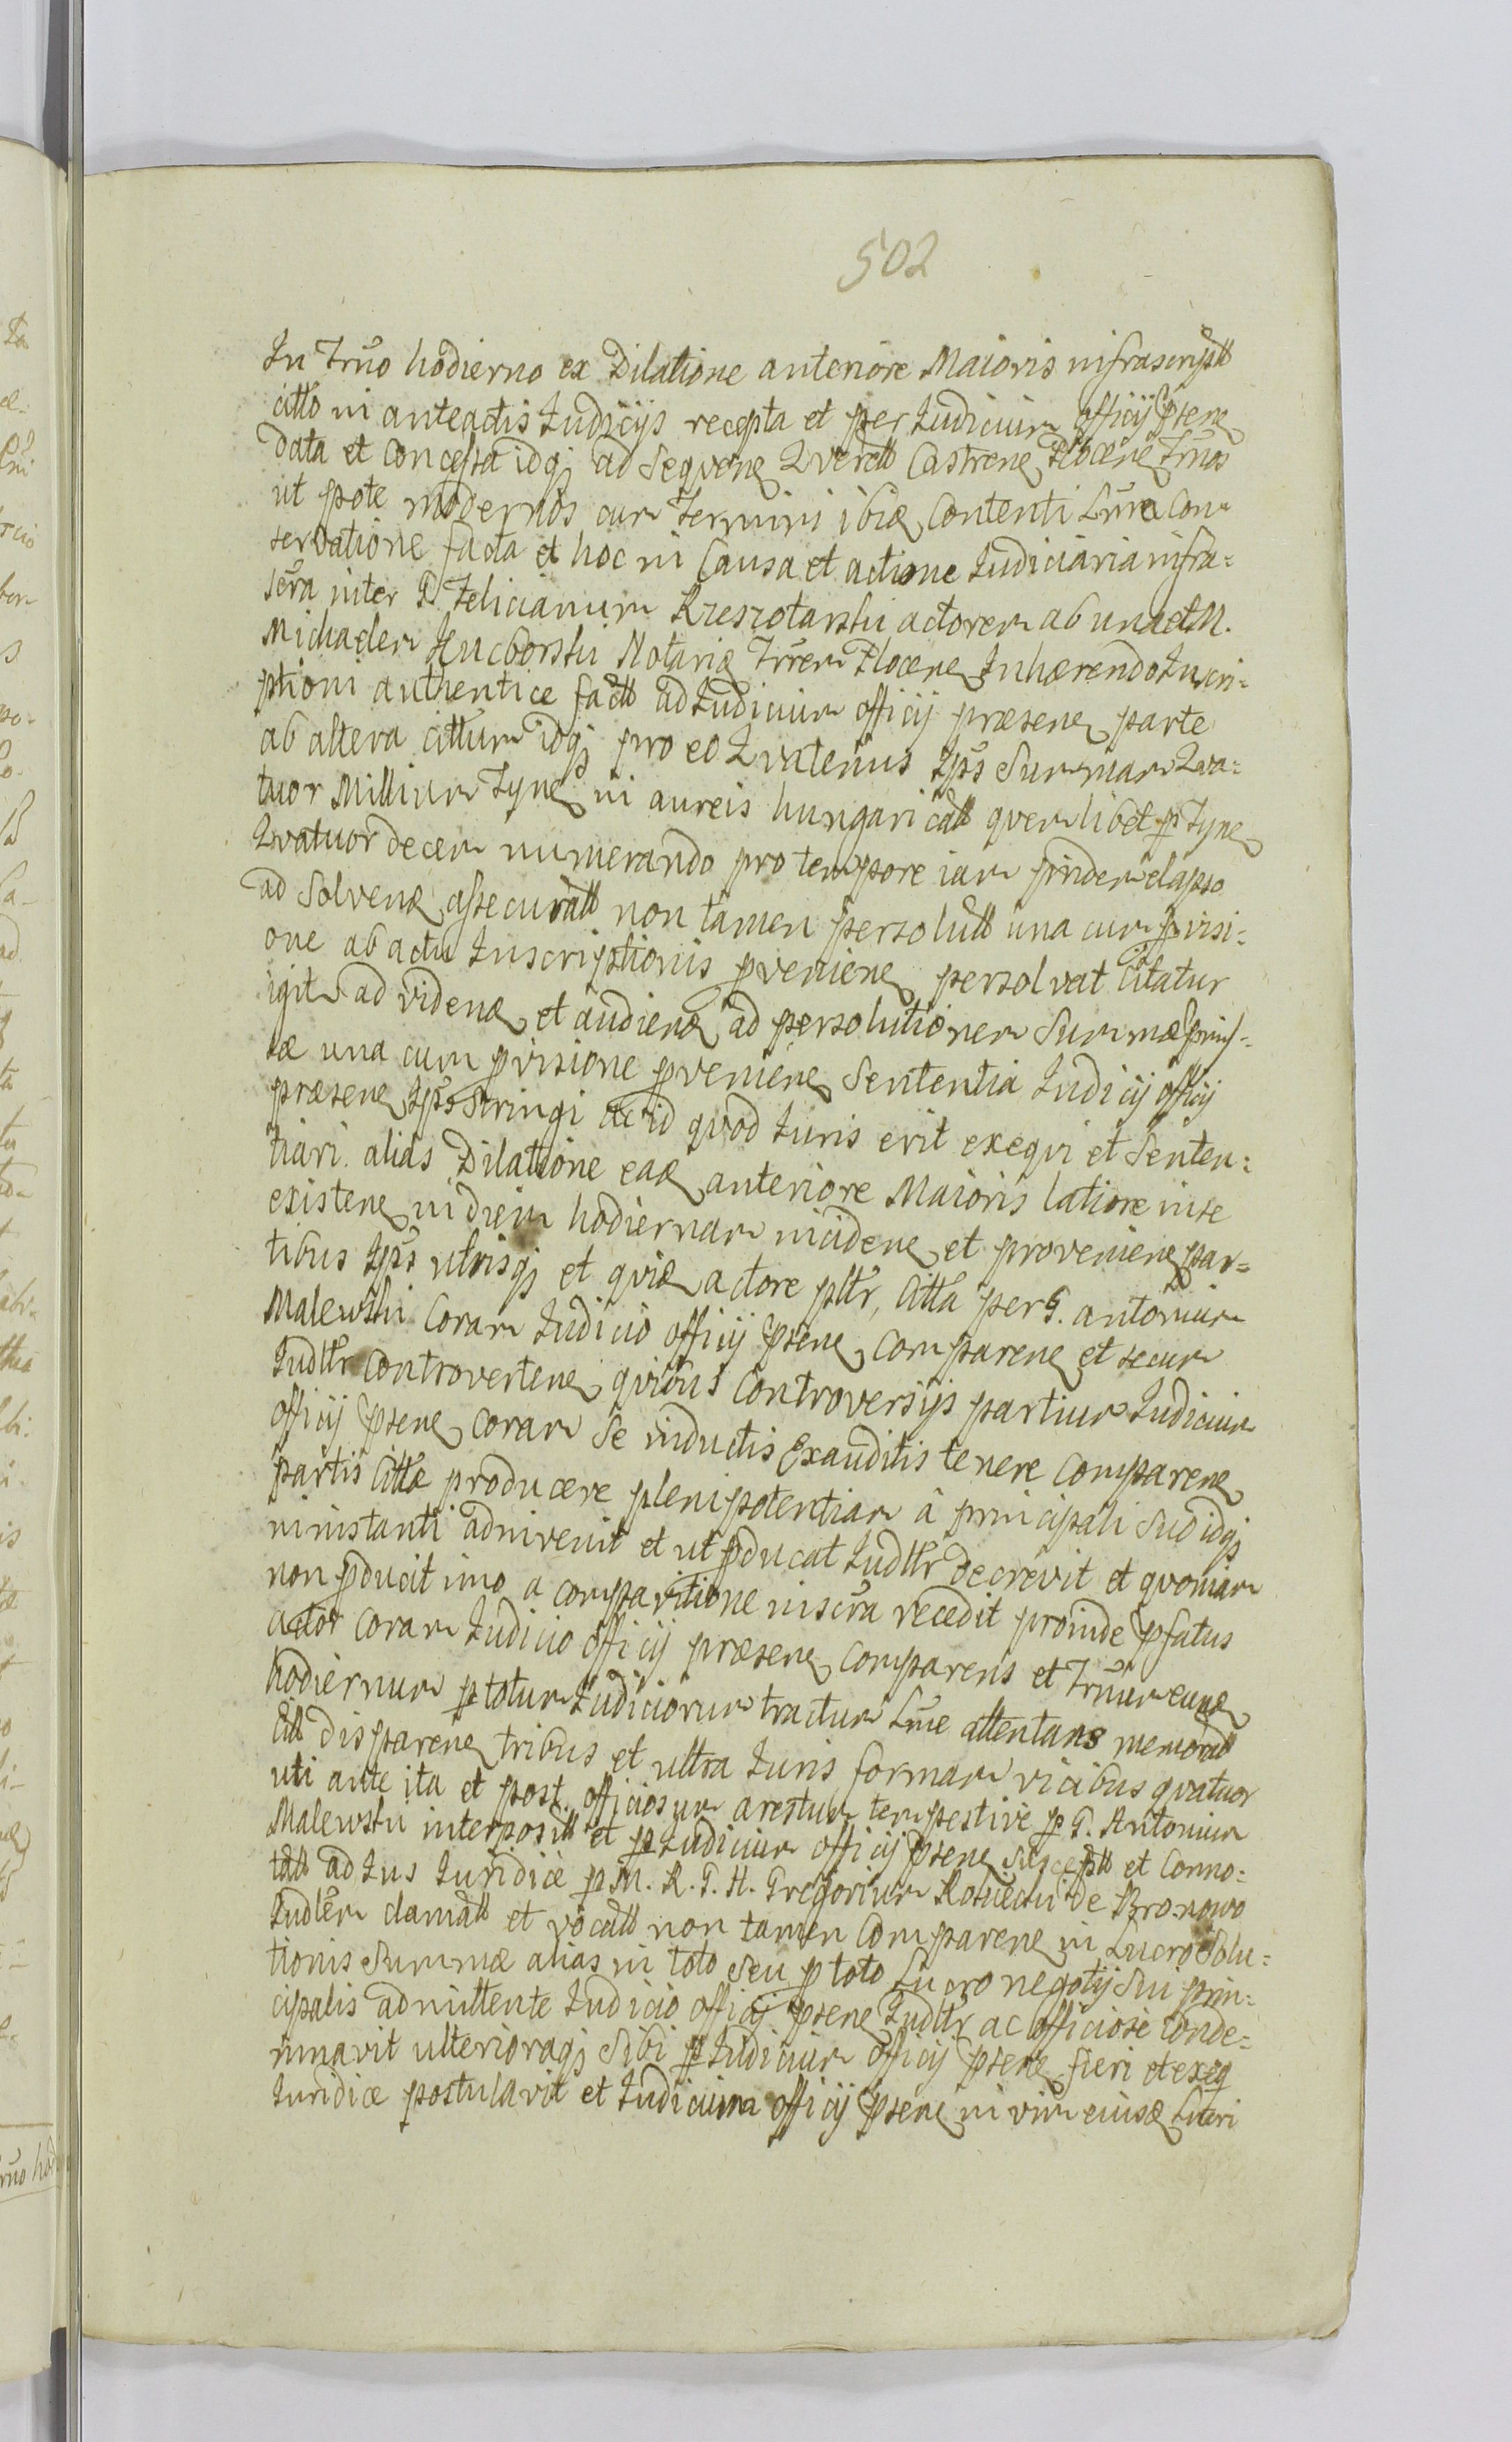 502
In Trno hodierno ex Dilatione anteriore Maioris infrascriptt
citto in anteactis Judicijs recepta et per Judicium officij psene
data et concessa idqj ad Sequene Querell Castrene Plocene Trnos
ut pote modernos cum Termini ibid Contenti Lime Con
servatione facta et hoc in Causa et actione Judiciaria infra=
scra inter G. Felicianum Krzszotarski actorem ab una et M.
Michaelem Notariu Trrem Plocene Inhærendo Inscri=
ptioni authentice factt ad Judicium officij præsene parte
ab altera cittum idqj pro eo Quatenus Ips Summam Qua=
tuor Millium Tyne in aureis hungaricatt quemlibet p Tyne
Quatuordecem numerando pro tempore iam pridem elapso
ad Solvend assecuratt non tamen persolutt una cum pvisi=
one ab actu Inscriptionis pveniene persolvat Citatur
igitr ad vidend et audiend ad persolutionem Summæ prins=
tæ una cum pvisione pveniene Sententia Judicij officij
præsene Ips stringi ac id quod Juris erit exeqvi et Senten=
tiari. alias Dilatione ead anteriore Maioris latiore in se
existene in diem hodiernam incidene et proveniene par=
tibus Ips utrisqj et quid actore pltr, Citta per G. antonium
Malewski Coram Judicio officij psene comparene et secum
Judltr Controvertene quibus Controversijs partium Judicium
officij psene coram Se inductis Exauditis tenere comparene
partis Cittæ producere plenipotentiam à principali Suo idqj
in instanti adinvenit et ut pducat Judltr decrevit et quoniam
non pducit imo a comparitione inscra recedit proinde pfatus
actor coram Judicio officij præsene Comparens et Trnum eund
hodiernum p totum Judiciorum tractum Lme attentans memoratt
Citt disparene tribus et ultra Juris formam vicibus quatuor
uti ante ita et post officiosum arestum tempestive p G. Antonium
Malewski interpositt et p Judicium officij psene susceptt et Conno=
tatt ad Jus Juridice p M. R. G. H. Gregorium de Bronowo
Judlem clamatt et vocatt non tamen Comparene in Lucro Solu=
tionis Summæ alias in toto Seu p toto Lucro negotij Sui prin=
cipalis admittente Judicio officij psene Judltr ac officiose Conde=
mnavit ulterioraqj Sibi p Judicium officij psene fieri et exeq
Juridice postulavit et Judicium officij psene in vim eiusd Literi